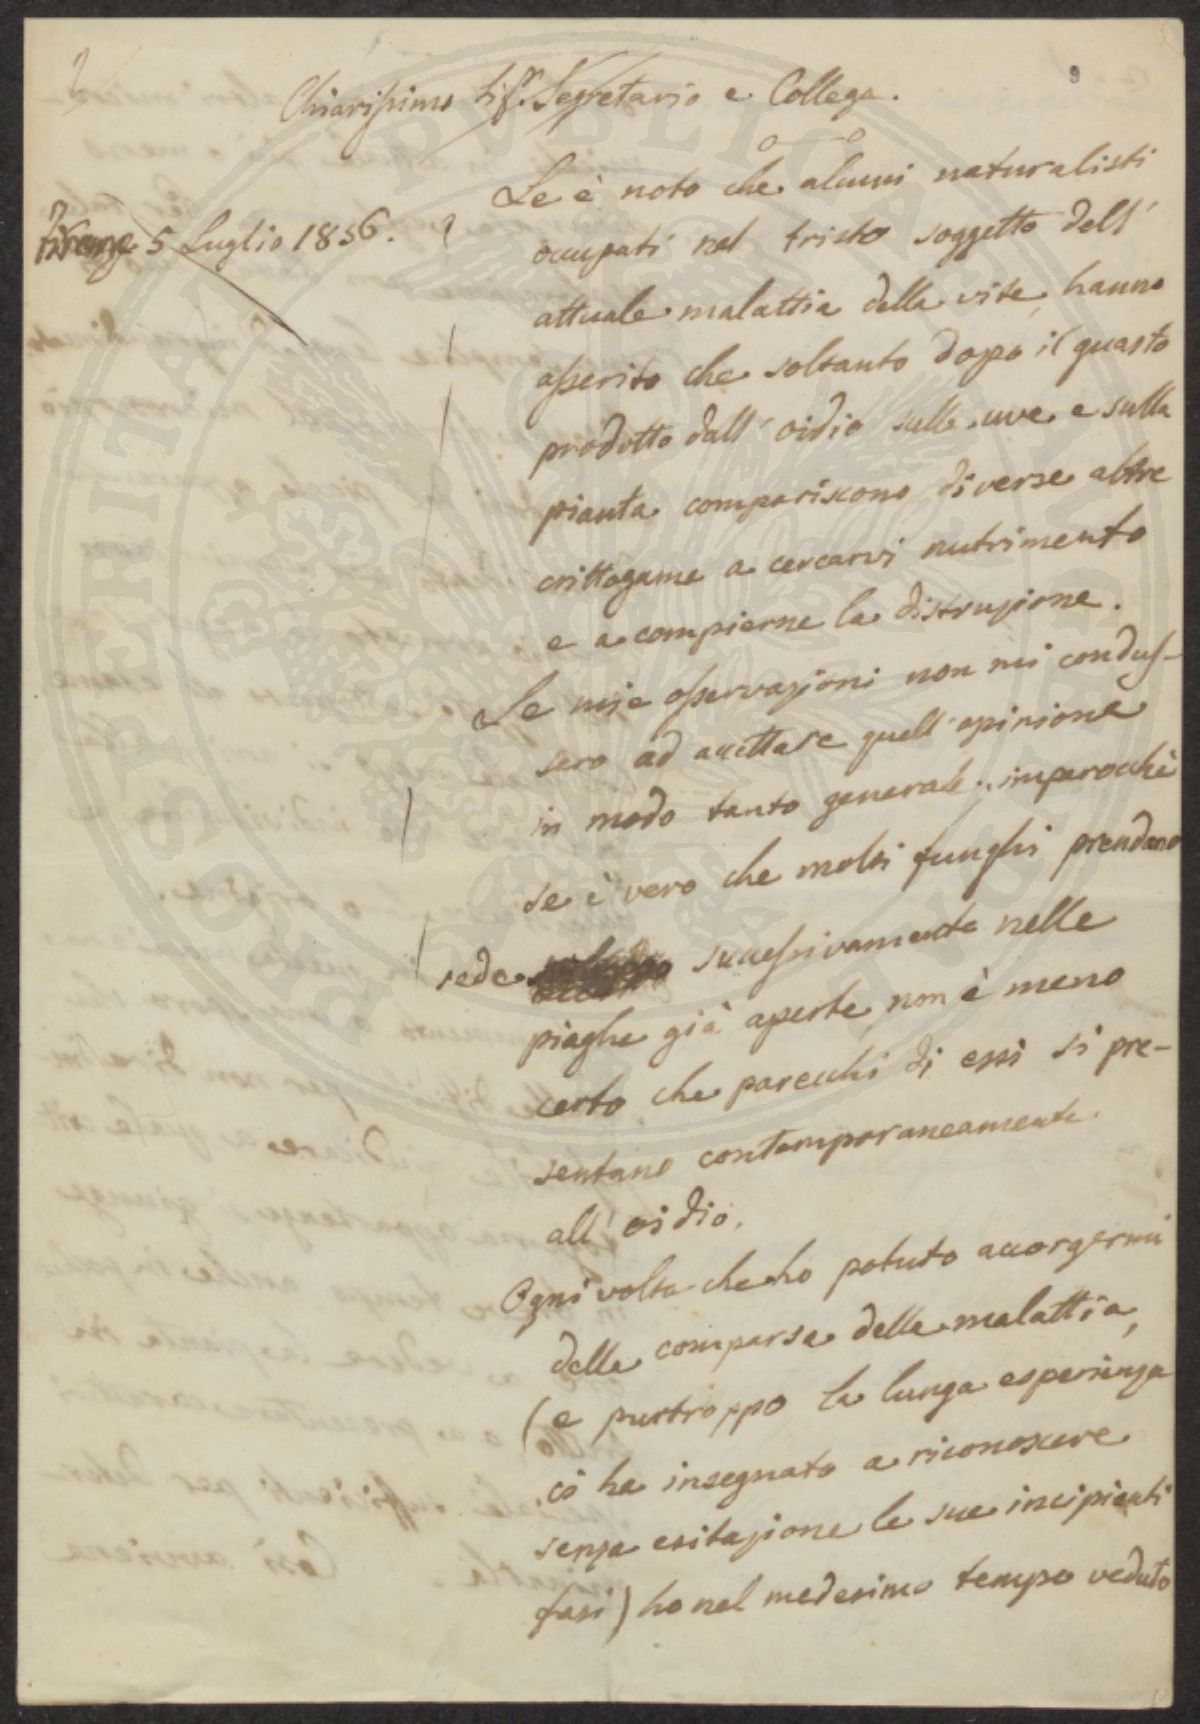 9
Chiarissimo Sig.r Segretario e Collega.
Le è noto che alcuni naturalisti
Firenze 5 Luglio 1856.
occupati nel tristo soggetto dell'
attuale malattia della vite, hanno
asserito che soltanto dopo il guasto
prodotto dall' oidio sulle uve e sulla
pianta compariscono diverse altre
crittogame a cercarvi nutrimento
e a compierne la distruzione.
Le mie osservazioni non mi condus-
sero ad accettare quell' opinione
in modo tanto generale; imperocchè
se è vero che molti funghi prendano
sede successivamente nelle
piaghe già aperte, non è meno
certo che parecchi di essi si pre-
sentano contemporaneamente
all' oidio.
Ogni volta che ho potuto accorgermi
della comparsa della malattia,
(e purtroppo la lunga esperienza
ci ha insegnato a riconoscere
senza esitazione le sue incipienti
fasi) ho nel medesimo tempo veduto
PROSPERITATI PVBLICAE AVGENDAE